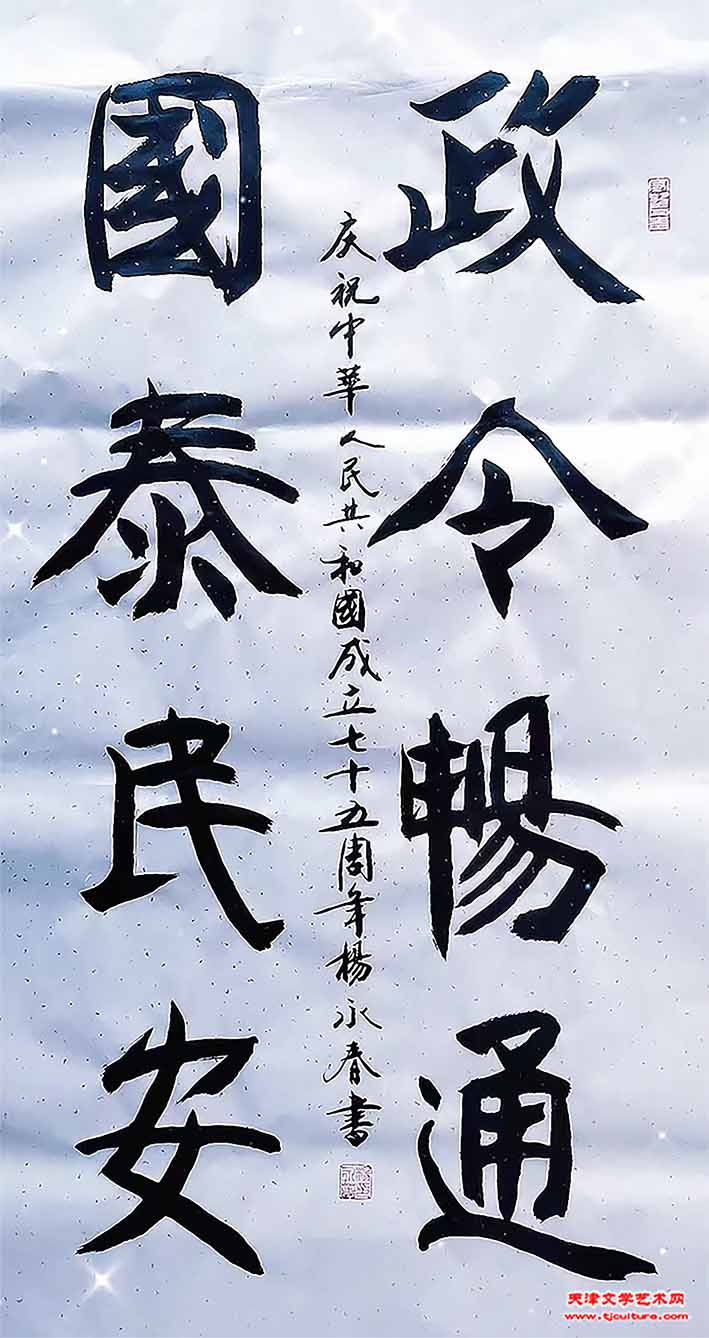 政令暢通
庆祝中華人民共和國成立七十五周年楊永春书
國泰民安
天津文学艺术网
www.tjculture.com